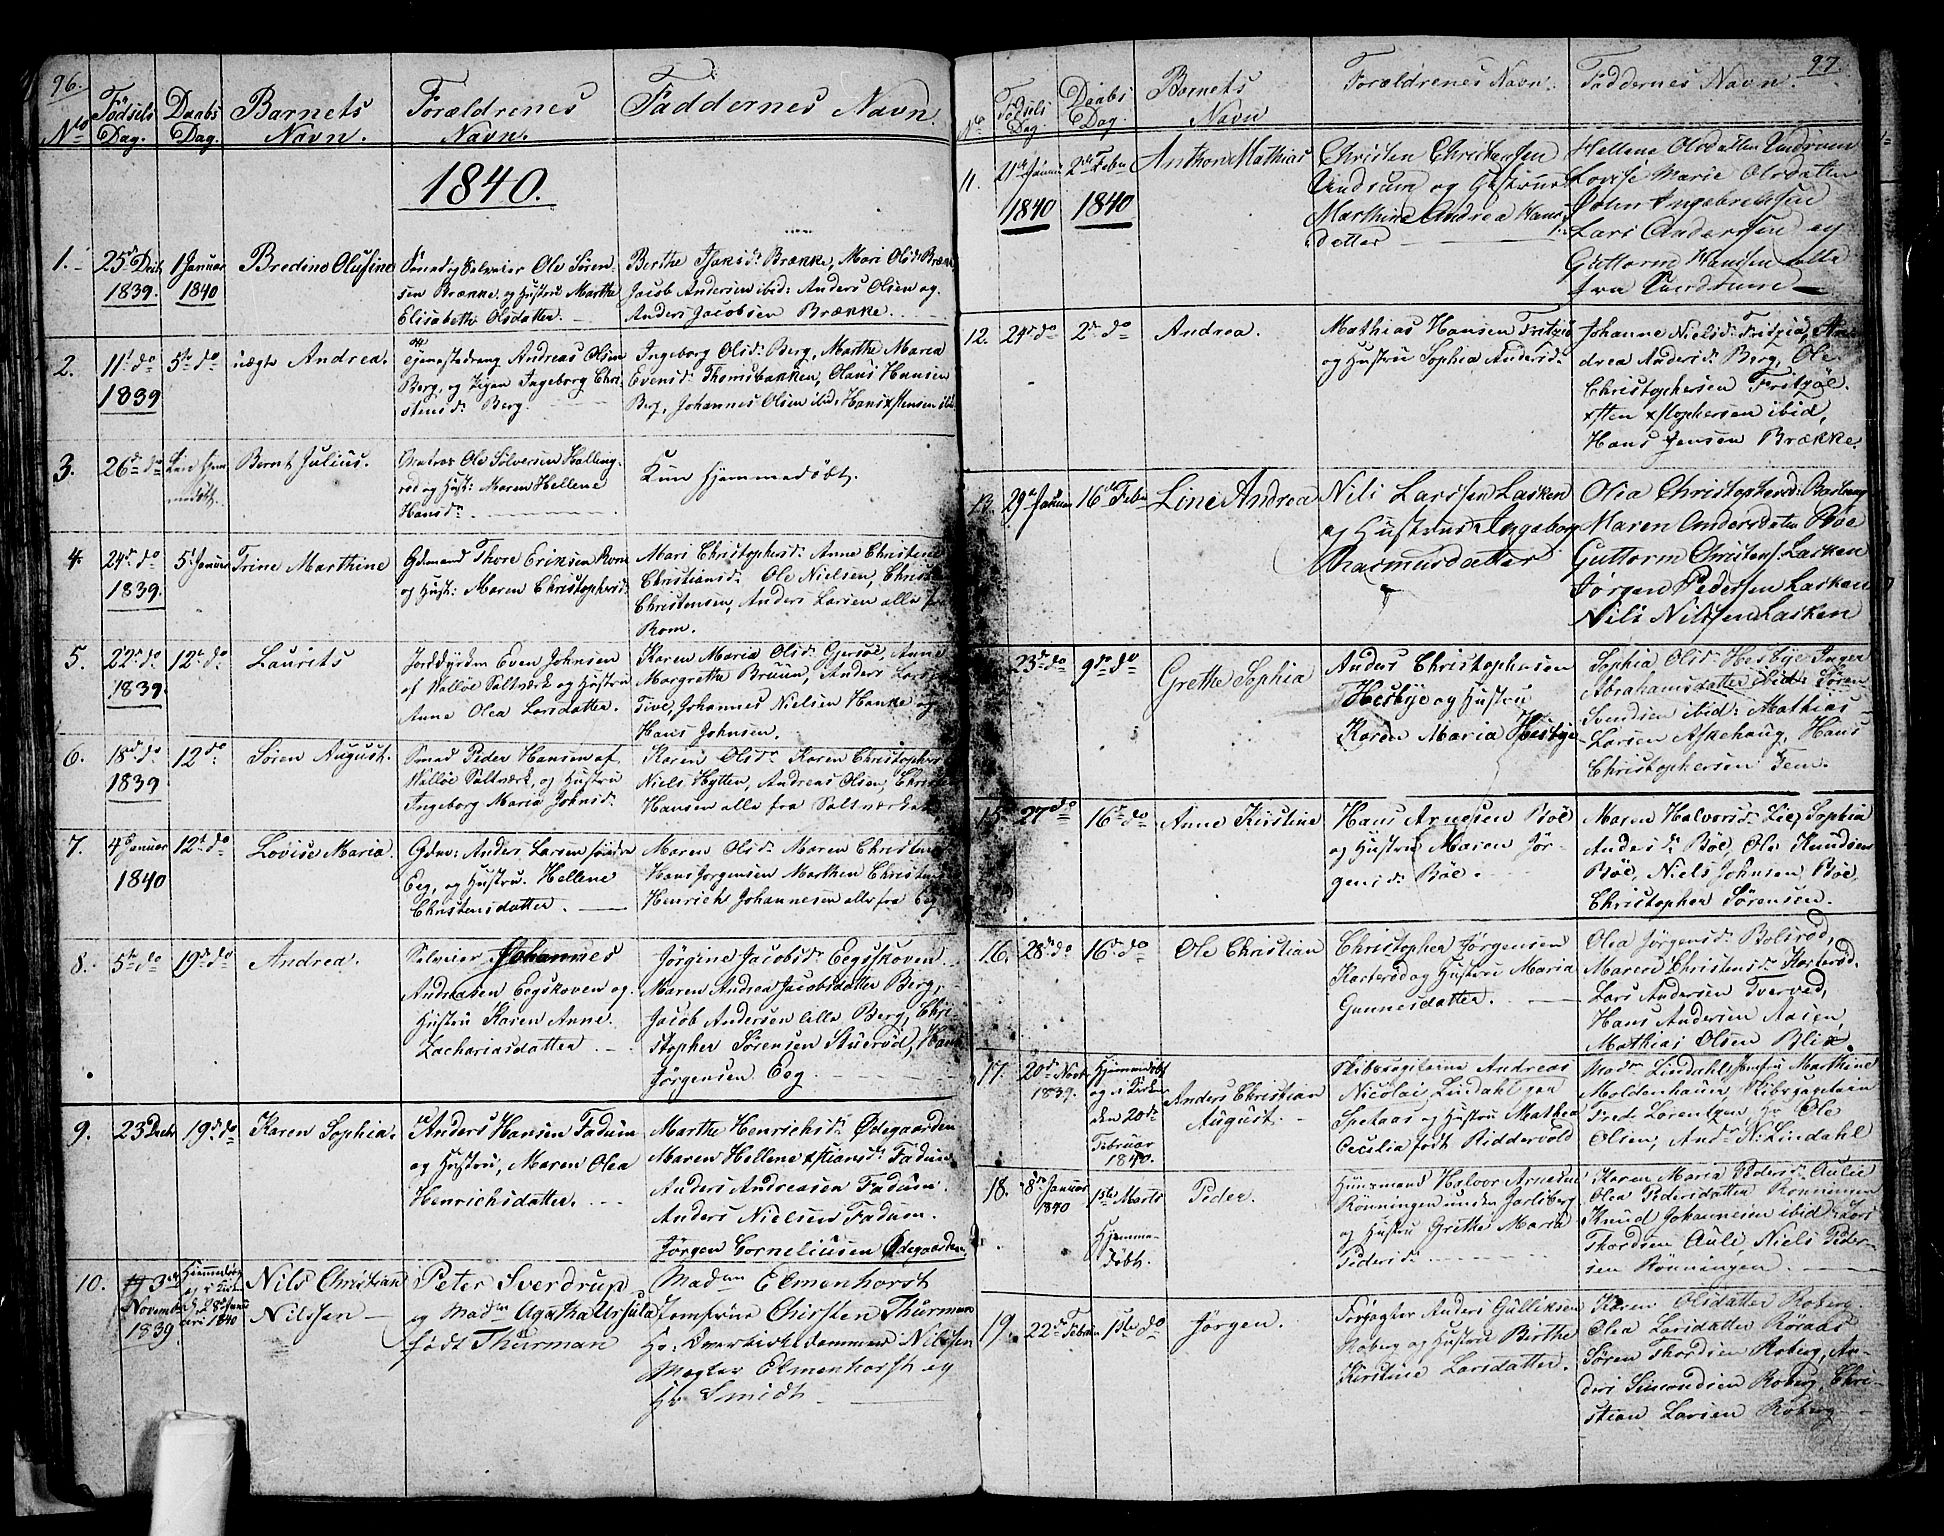 96.
No
Fødsels
Dag.
Daabs
Dag.
Barnets
Navn.
Forældrenes
Navn.
Faddernes Navn.
1840.
1.
25de Decb
1839.
1 Januar
1840
Bredine Olufine
Ole Søren-
sen Brække og Hustru Marthe
Elisabeth Olsdatter.
Berthe Isaksd. Brække, Mari Olsd. Brække
Jacob Andersen ibid: Anders Olsen og
Anders Jacobsen Brække.
2.
11t do
1839
5te do
uægte Andrea.
Tjenestedreng Andreas Olsen
Berg, og Pigen Ingeborg Chri-
stensd. Berg.
Ingeborg Olsd. Berg, Marthe Maria
Evensd. Thomsbakken, Olaus Hansen
Berg, Johannes Olsen ibid. Hans Xstensen ibd.
3.
26de do
Kun Hjem-
medøbt.
Bernt Julius.
Matros Ole Sølversen Halling-
rød og Hust: Maren Hellene
Hansdr.
Kun Hjemmedøbt.
4.
24de do
1839.
5t Januar
Trine Marthine
Gdmand Thore Eriksen Rom
og Hust: Maren Christophersd.
Mari Christophersd. Anne Christine
Christiansd. Ole Nielsen, Christen
Christensen, Anders Larsen alle fra
Rom.
5.
22de do
1839
12te do
Laurits
Jorddyrker Even Johnsen
af Walløe Saltværk og Hustru
Anne Olea Larsdatter.
Karen Maria Olsd. Gjersøe, Anne
Margrethe Bruun, Anders Larsen
Tive, Johannes Nielsen Hanke og
Hans Johnsen.
6.
18de do
1839
12 do
Søren August.
Smed Peder Hansen af
Walløe Saltværk, og Hustru
Ingeborg Maria Johnsd.
Karen Olsd. Karen Christophersd.
Niels Hytten, Andreas Olsen, Christen
Hansen alle fra Saltværket
7.
4de Januar
1840
12te do
Lovise Maria.
Gdm: Anders Larsen søndre
Eeg, og Hustru Hellene
Christensdatter.
Maren Olsd. Maren Christensd.
Hans Jørgensen Marthen Christensen
Henrich Johannesen alle fra Eeg
8.
5te do
19de do
Andrea.
Selveier Johannes
Andreasen Eegskoven og
Hustru Karen Anne
Zachariasdatter.
Jørgine Jacobsd. Eegsskoven
Maren Andrea Jacobsdatter Berg,
Jacob Andersen lille Berg, Chri-
stopher Sørensen Stuerød, Hans
Jørgensen Eeg
9.
23 Decbr
19de do
Karen Sophia.
Anders Hansen Fadum
og Hustru, Maren Olea
Henrichsdatter.
Marthe Henrichsd. Ødegaarden
Maren Hellene Xstiansd. Fadum
Anders Andreasen Fadum.
Anders Nielsen Fadum.
Jørgen Corneliusen Ødegaarden.
10.
3de
November
1839
Hjemmedøbt
og i Kirken
d. 28de Janu
ari 1840
Nils Christian
Nilssen
Peter Sverdrup
og Madm Agatha Ursula
født Thurman
Madm Elmenhorst
Jomfrue Chirsten Thurman
Hr: Overkirkedommer Nilssen
Mægler Elmenhorst og
Hr Smidt
97.
No
Fødsels
Dag
Daabs
Dag.
Barnets
Navn
Forældrenes Navn.
Faddernes Navn.
11.
21de Januar
1840
2de Febr
1840
Anthon Mathias
Christen Christensen
Vindrum og Hustrue
Marthine Andrea Hans
datter
Hellene Olsdatter Vindrum
Lovise Marie Olsdatter
John Ingebretsen
Lars Andersen og
Guttorm Hansen alle
fra Vindrum
12.
24de do
2de do
Andrea.
Mathias Hansen Fritzøe
og Hustru Sophia Andersd.
Johanne Nielsd. Fritzøe, An-
drea Andersd. Berg, Ole
Christophersen Fritzøe.
Xsten Xstophersen ibid,
Hans Jensen Brække.
13.
29de Januar
16de Febr
Line Andrea
Nils Larssen Lasken
og Hustrue Ingeborg
Rasmusdatter
Olea Christophersd:
Maren Andersdatter Bøe
Guttorm Christens: Lasken
Jørgen Pedersen Lasken
Nils Nilssen Lasken
23de do
9de do
Grethe Sophia
Anders Christophersen
Hesbye og Hustru
Karen Maria Hesbye
Sophia Olsd. Hesbye Inger
Abrahamsdatter ibid: Søren
Svendsen ibid: Mathias
Larsen Askehaug, Hans
Christophersen Fen.
15
27 do
16de do
Anne Kirstine
Hans Arnesen Bøe
og Hustru Maren Jør-
gensd. Bøe.
Maren Halvorsd. Lie, Sophia
Andersd. Bøe, Ole Knudsen
Bøe, Niels Johnsen Bøe,
Christopher Sørensen.
16.
28de do
16de do
Ole Christian
Christopher Jørgensen
Korterød og Hustru Maria
Gunnersdatter.
Olea Jørgensd. Bolsrød,
Maren Christensd. Korterød.
Lars Andersen Tverved,
Hans Andersen Aasen,
Mathias Olsen Blix.
17.
20de Novbr
1839.
Hjemmedøbt
og i Kirken
den 20de
Februar
1840.
Anders Christian
August.
Skibscapitaine Andreas
Nicolai Lindahl paa
Spetaas og Hustru Mathea
Cecilia født Riddervold
Madm Lindahl, Jomfru Marthine
Moldenhauer, Skibscapitain
Fred. Lorentzen, Hr Ole
Olsen, Andr. N. Lindahl
18.
8de Januar
1840
1ste Marts
Hjemme-
døbt.
Peder.
Huusmand Halvor Arnesen
Rønningen under Jarlsberg
og Hustru Grethe Maria
Pedersd.
Karen Maria Pedersd. Aulie
Olea Pedersdatter Rønningen
Knud Johannesen ibid: Lars
Thordsen Auli, Niels Peder-
sen Rønningen.
19.
22de Februar
1ste do
Jørgen.
Forpagter Anders Gulliksen
Roberg og Hustru Berthe
Kirstine Larsdatter.
Karen Olsdatter Roberg
Olea Larsdatter Roraas
Søren Thordsen Roberg, An-
ders Simondsen Roberg, Chri-
stian Larsen Roberg